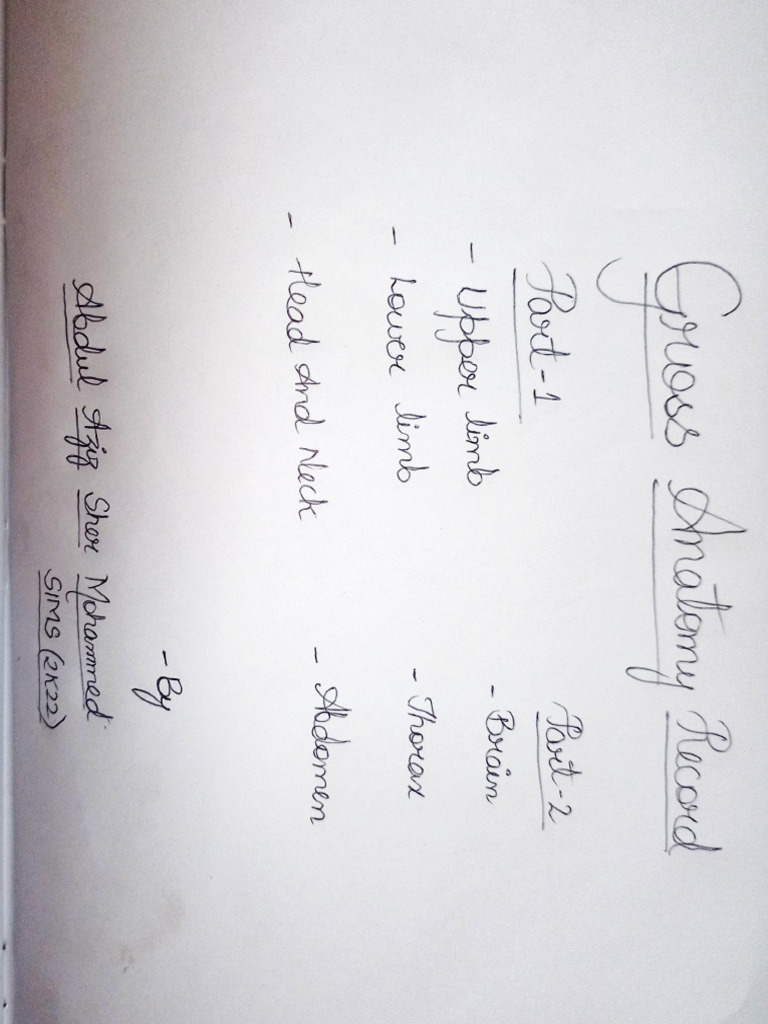 Gross Anatomy Record
Part-1 Part-2
- Upper limb - Brain
- Lower limb - Thorax
- Head And Neck - Abdomen
- By
Abdul Aziz Sher Mohammed
SIMS (2K22)